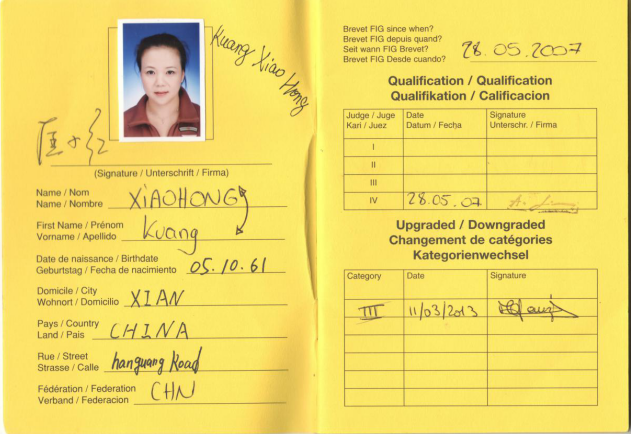 Kuang Xiao Hong
匡小红
(Signature / Unterschrift / Firma)
Name / Nom
Name / Nombre XIAOHONG
First Name / Prénom
Vorname / Apellido Kuang
Date de naissance / Birthdate
Geburtstag / Fecha de nacimiento 05.10.61
Domicile / City
Wohnort / Domicilio XIAN
Pays / Country
Land / Pais CHINA
Rue / Street
Strasse / Calle hanguang Road
Fédération / Federation
Verband / Federacion CHN
Brevet FIG since when?
Brevet FIG depuis quand?
Seit wann FIG Brevet?
Brevet FIG Desde cuando? 28.05.2007
Qualification / Qualification
Qualifikation / Calificacion
Judge / Juge Date Signature
Kari / Juez Datum / Fecha Unterschr. / Firma
I
II
III
IV 28.05.07
Upgraded / Downgraded
Changement de catégories
Kategorienwechsel
Category Date Signature
III 11/03/2013